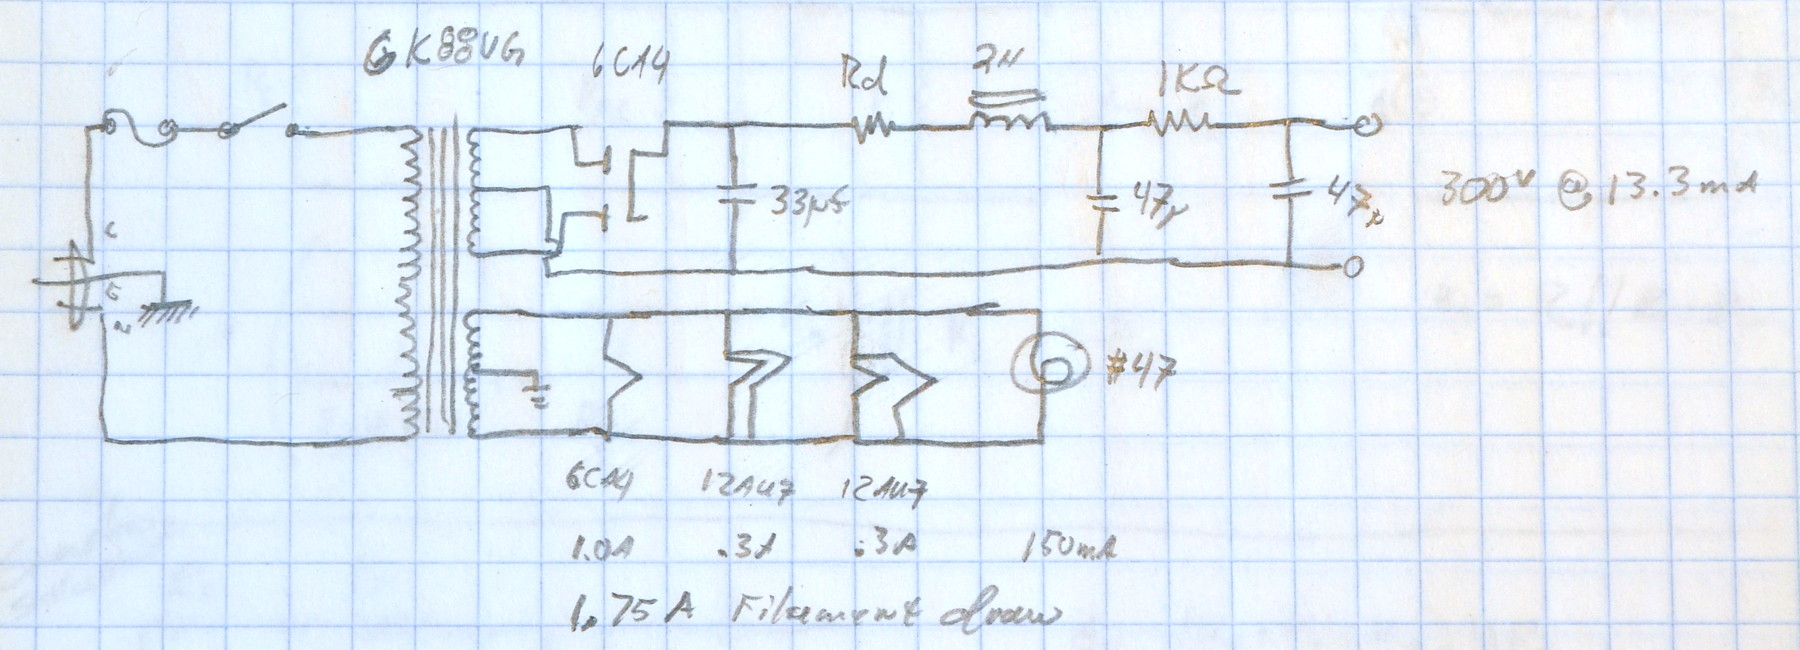 6K88VG 6CA4 Rd 2H 1KΩ
33µF 47µ 47µ 300V @ 13.3mA
#47
6CA4 12AU7 12AU7
1.0A .3A .3A 150mA
1.75A Filament draw